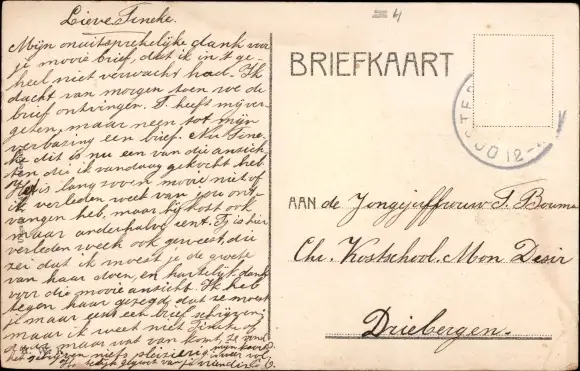 Lieve Tineke.
Mijn onuitsprekelijke dank voor
je mooie brief, dat ik in 't ge-
heel niet verwacht had. Ik
dacht van morgen toen we de
brief ontvingen. T. heeft mij ver-
geten, maar neen tot mijn
verbazing een brief. Nu Tine-
ke dit is nu een van die ansich
ten die ik vandaag gekocht heb
is lang zoven mooie niet of
ik verleden week van jou ont-
vangen heb, maar hij kost ook
maar anderhalve cent. Ty is hier
verleden week ook geweest, die
zei dat ik moest je de groete
van haar doen, en hartelijk dank
voor die mooie ansicht. Ik heb
tegen haar gezegd dat ze moest
je maar eens een brief schrijven
maar ik weet niet Tineke of
maar wat van komt, ze vond
het schrijven niets plezierig
je vriendin
= 4
BRIEFKAART
12-
AAN de Jongejuffrouw T. Bouma
Chr. Kostschool. Mon Desir
Driebergen.